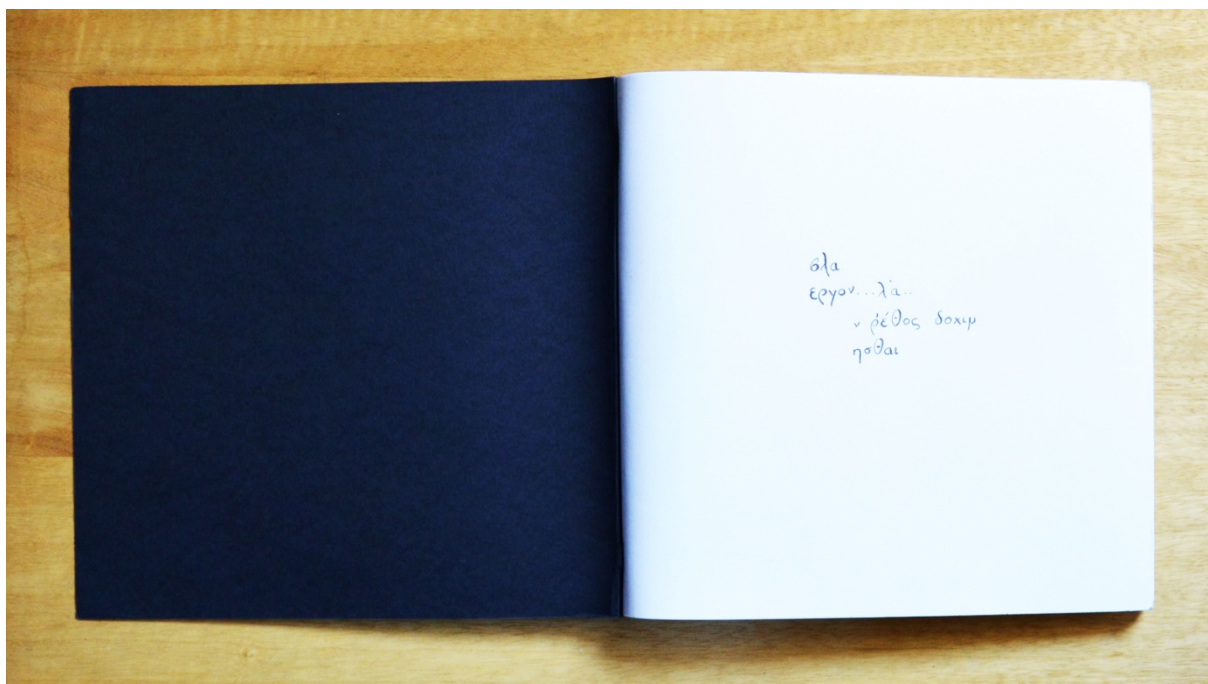 σλα
εργον...λ'α..
ν ῥέθος δοκιμ
ησθαι